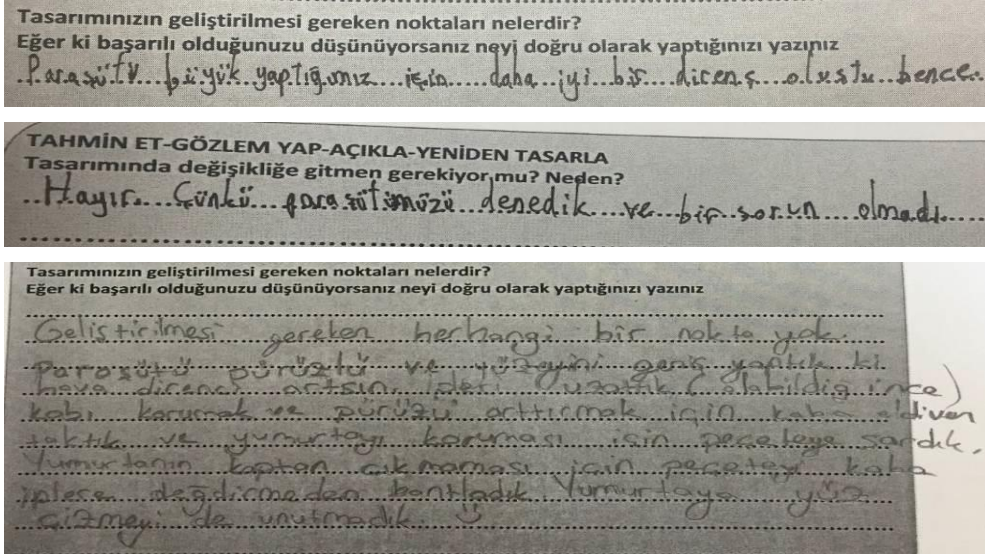 Tasarımınızın geliştirilmesi gereken noktaları nelerdir?
Eğer ki başarılı olduğunuzu düşünüyorsanız neyi doğru olarak yaptığınızı yazınız
Paraşütü büyük yaptığımız için daha iyi bir direnç oluştu bence.
TAHMİN ET-GÖZLEM YAP-AÇIKLA-YENİDEN TASARLA
Tasarımında değişikliğe gitmen gerekiyor mu? Neden?
Hayır. Çünkü paraşütümüzü denedik ve bir sorun olmadı.
Tasarımınızın geliştirilmesi gereken noktaları nelerdir?
Eğer ki başarılı olduğunuzu düşünüyorsanız neyi doğru olarak yaptığınızı yazınız
Geliştirilmesi gereken herhangi bir nokta yok.
Paraşütü pürüzlü ve yüzeyini geniş yaptık ki
hava direnci artsın, ipleri uzattık (olabildiğince)
kabı korumak ve pürüzü arttırmak için kaba eldiven
taktık ve yumurtayı koruması için peçeteye sardık.
Yumurtanın kaptan çıkmaması için peçeteyi kaba
iplere değdirmeden bantladık Yumurtaya yüz
çizmeyi de unutmadık. :)